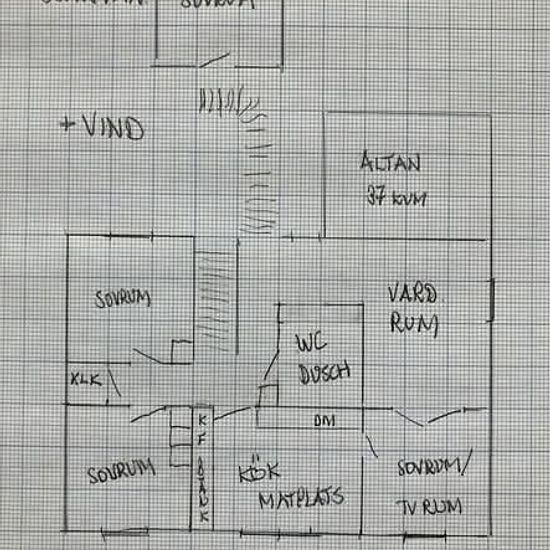 SOVRUM
+ VIND
ALTAN
37 KVM
SOVRUM
VARD.
RUM
WC
DUSCH
KLK
K
F
BÄNK
DM
SOVRUM
KÖK
MATPLATS
SOVRUM/
TV RUM